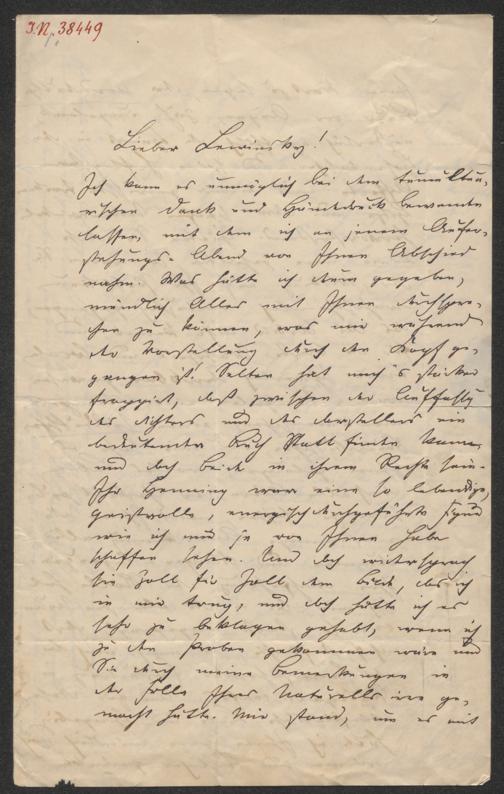 I.N. 38449
Lieber Lewinsky!
Ich kann es unmöglich bei dem tumultua-
rischen Dank und Händedruck bewenden
lassen, mit dem ich an jenem Aufer-
stehungs-Abend von Ihnen Abschied
nahm. Was hätte ich drum gegeben,
mündlich Alles mit Ihnen durchspre-
chen zu können, was mir während
der Vorstellung durch den Kopf ge-
gangen ist! Selten hat mich's stärker
frappirt, daß zwischen der Auffassung
des Dichters und des Darstellers ein
bedeutender Bruch Statt finden kann
und doch beide in ihrem Rechte sein.
Ihr Henning war eine so lebendige,
geistvolle, energisch durchgeführte Figur
wie ich nur je von Ihnen habe
schaffen sehen. Und doch widersprach
sie Zoll für Zoll dem Bilde, das ich
in mir trug, und doch hätte ich es
sehr zu beklagen gehabt, wenn ich
zu den Proben gekommen wäre und
Sie durch meine Bemerkungen in
der Fülle Ihres Naturells irre ge-
macht hätte. Mir stand, um es mit